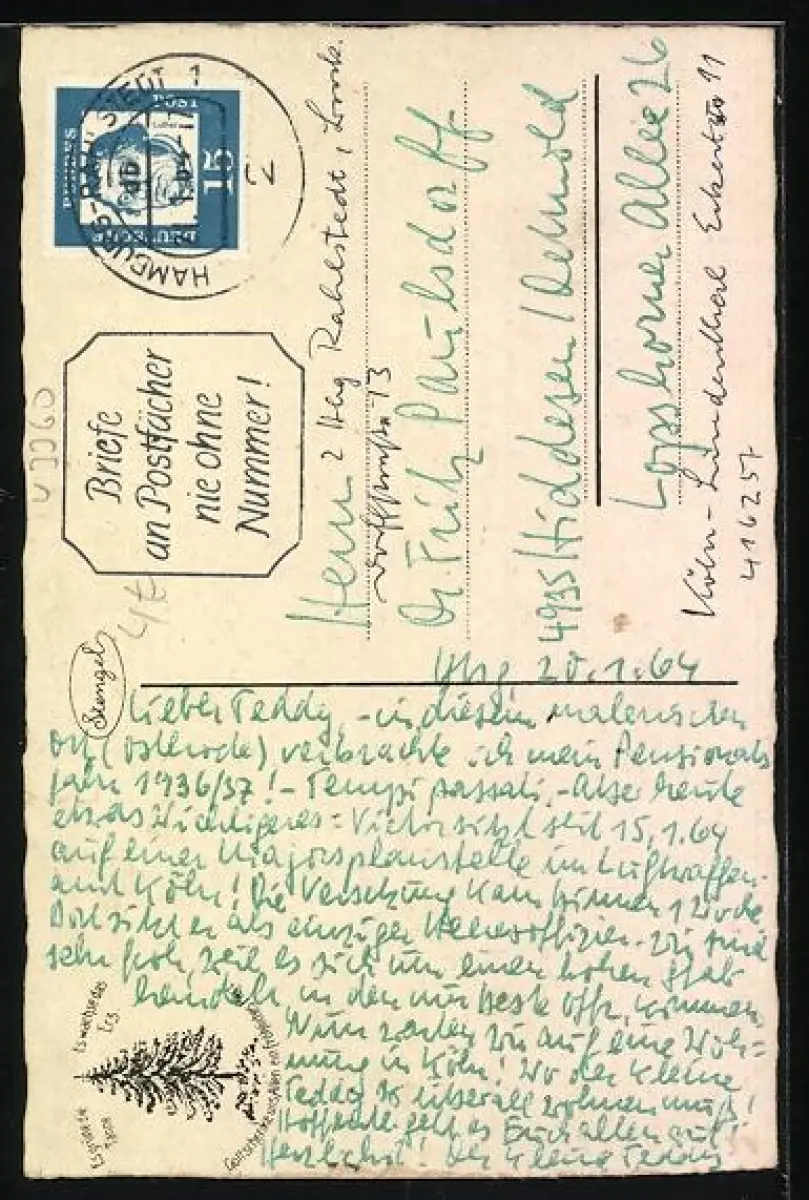 HAMBURG-RAHLSTEDT 1
DEUTSCHE
BUNDESPOST
15
Luther
Briefe
an Postfächer
nie ohne
Nummer!
43060
Herrn
2 Hbg Rahlstedt,
13
Dr. Fritz Paulsdorff
4935 Hiddesen / Detmold
Lopshorner Allee 26
Köln-Lindenthal
416257
Stengel
Hbg, 20.1.64
Lieber Teddy, - in diesem malerischen
Ort (Osterode) verbrachte ich mein Pensionats
jahr 1936/37! - Tempi passati. - Aber heute
etwas Wichtigeres: Victor sitzt seit 15.1.64
auf einer Majorsplanstelle im Luftwaffen-
amt Köln! Die Versetzung kam binnen 1 Woche
Dort sitzt er als einziger Heeresoffizier. Wir sind
sehr froh, weil es sich um einen hohen Stab
handelt, in den nur beste Offz. kommen
Nun warten wir auf eine Woh=
nung in Köln! Wo der kleine
Teddy überall wohnen muss!
Hoffentl. geht es Euch allen gut!
Herzlichst! Der kleine Teddy
Es grüne die
Tanne
Es wachse das
Erz
Gott schenke uns Allen ein fröhliches